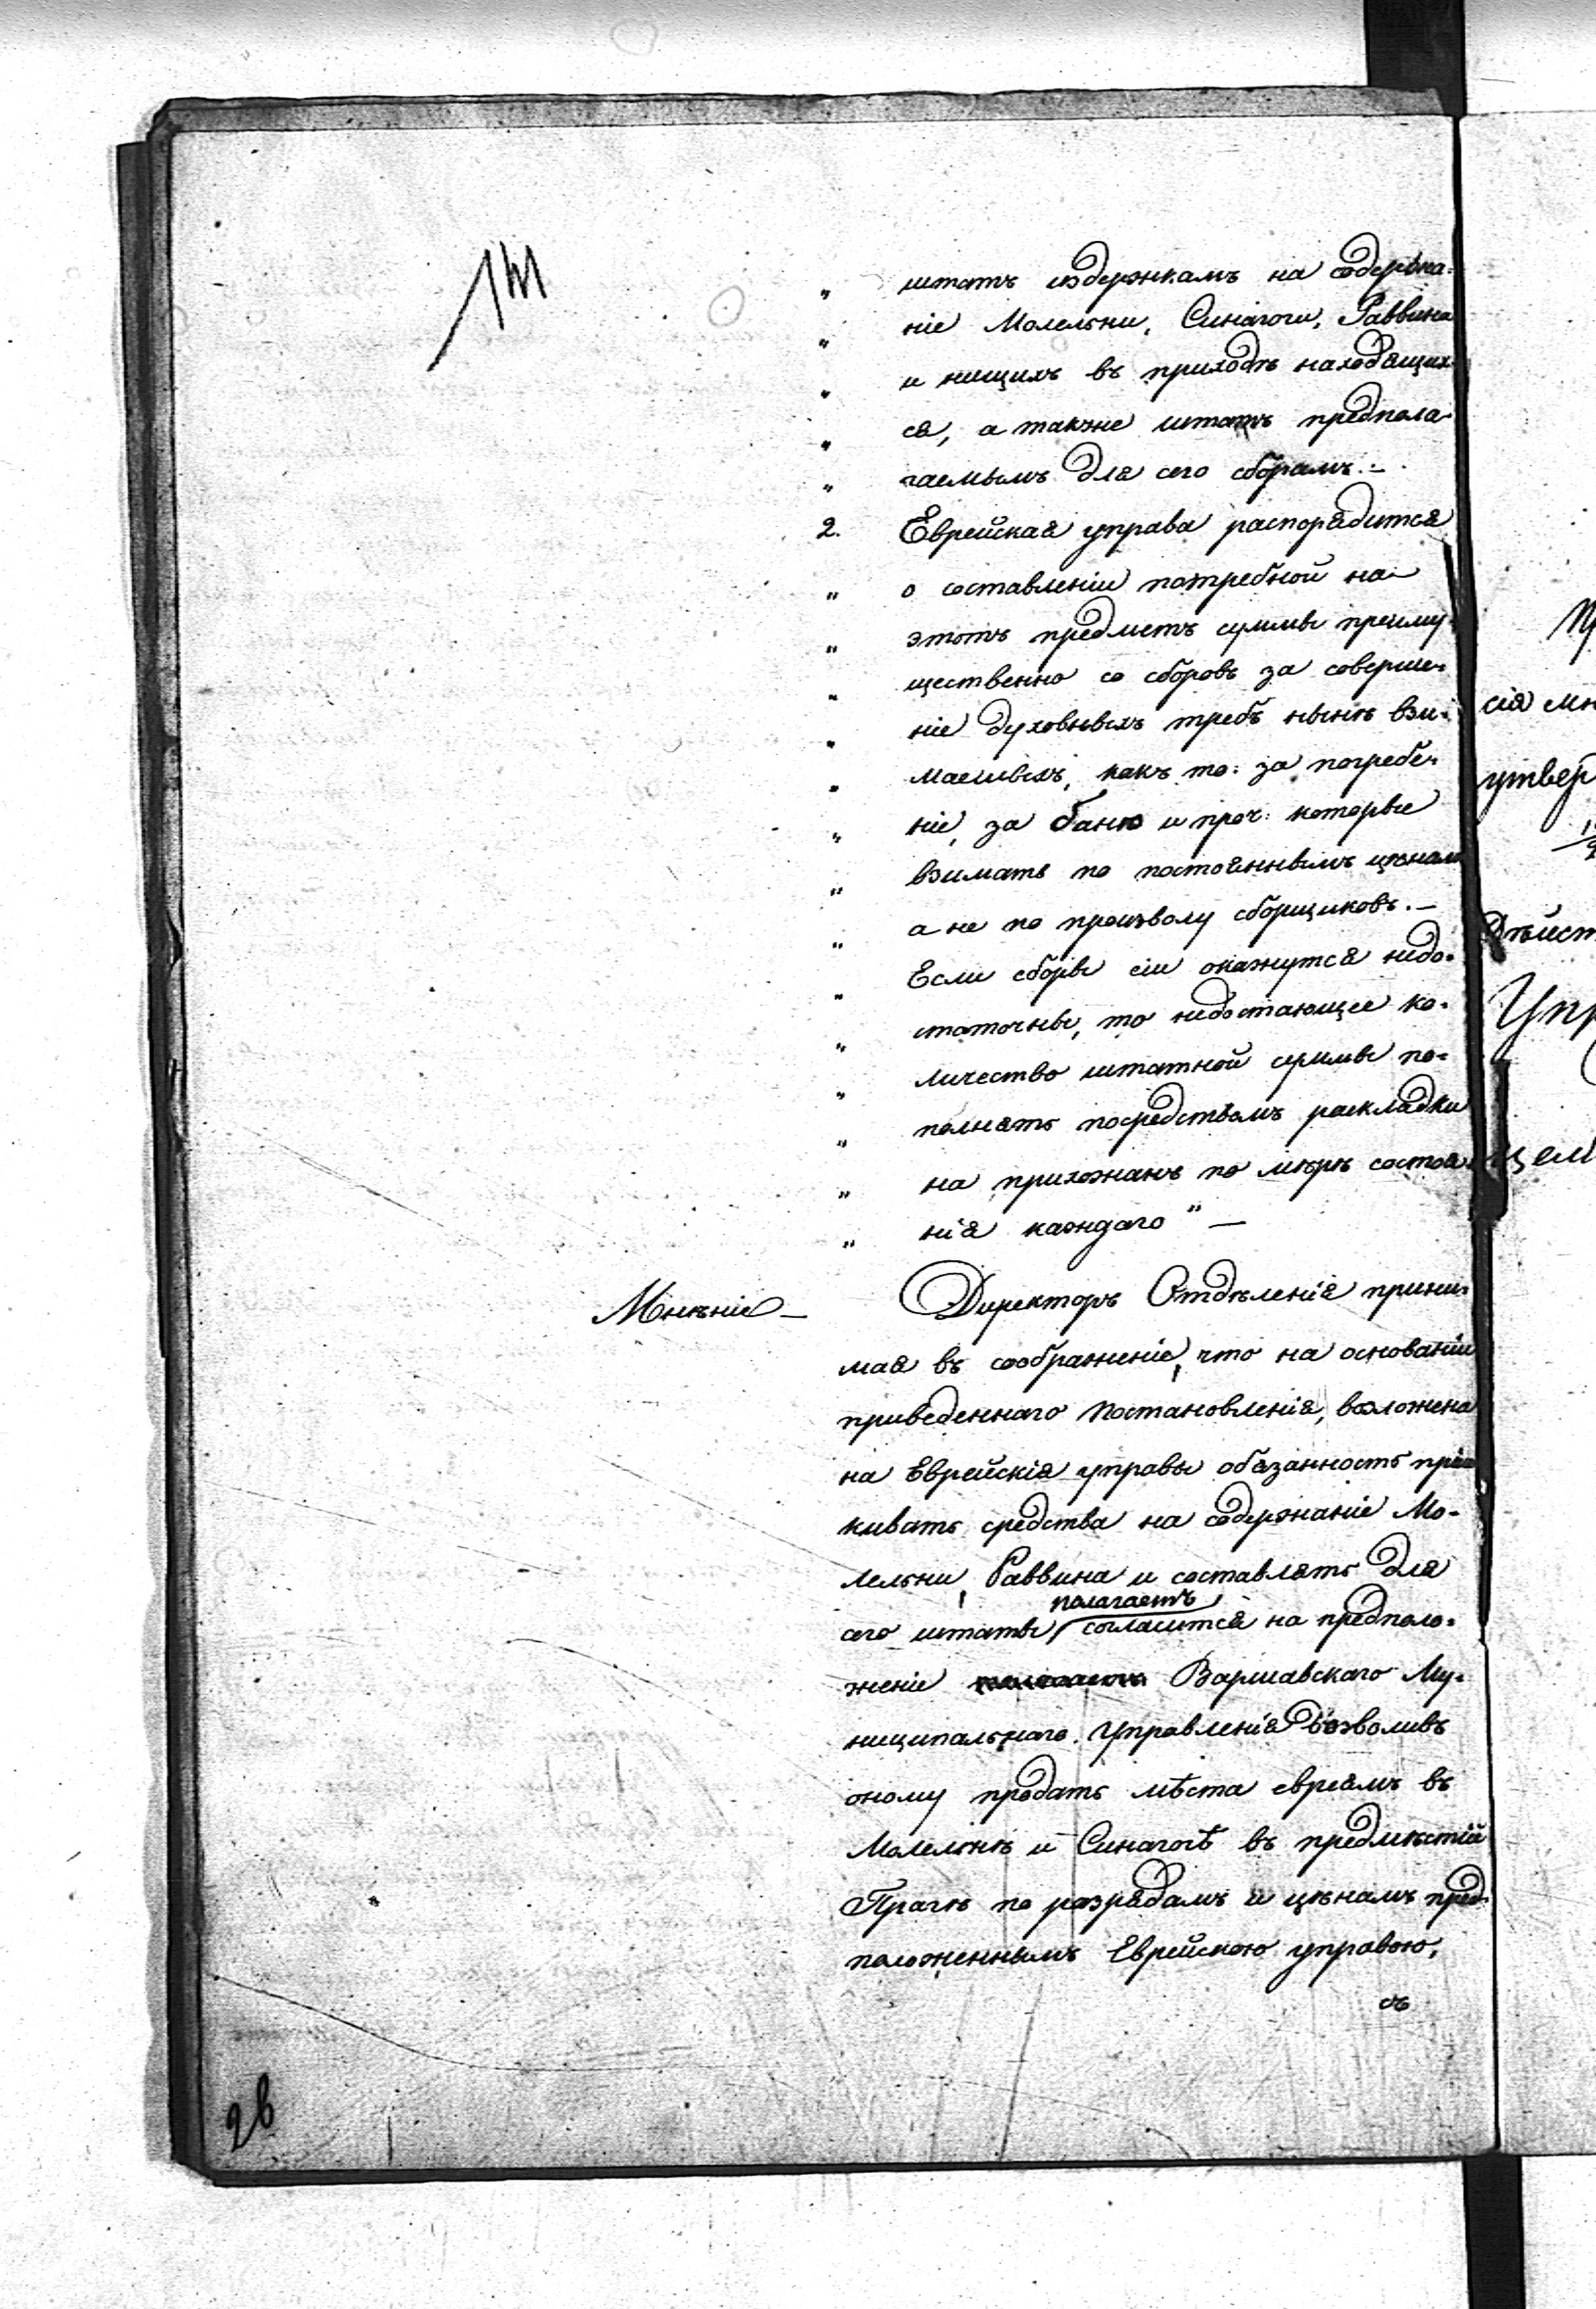 „ штатъ издержкамъ на содержа-
„ ніе Молельни, Синагоги, Раввина
„ и нищихъ въ приходѣ находящих-
„ ся, а также штатъ предпола-
„ гаемымъ для сего сборамъ. –
2. Еврейская управа распорядится
„ о составленіи потребной на
„ этотъ предметъ суммы преиму-
„ щественно со сборовъ за соверше-
„ ніе духовныхъ требъ нынѣ взи-
„ маемыхъ, какъ то: за погребе-
„ ніе, за баню и проч: которые
„ взимать по постояннымъ цѣнам
„ а не по произволу сборщиковъ. –
„ Если сборы сіи окажутся недо-
„ статочны, то недостающее ко-
„ личество штатной суммы по-
„ полнять посредствомъ раскладки
„ на прихожанъ по мѣрѣ состоя-
„ нія каждаго“ –
Мнѣніе –
Директоръ Отдѣленія прини-
мая въ соображеніе, что на основаніи
приведеннаго постановленія, возложена
на Еврейскія управы обязанность
кивать средства на содержаніе Мо-
лельни, Раввина и составлять для
полагаетъ
сего штаты, согласится на предполо-
женіе Варшавскаго Му-
ниципальнаго Управленія дозволивъ
оному продать мѣста евреямъ въ
Молельнѣ и Синагогѣ въ предмѣстіи
Прагѣ по разрядамъ и цѣнамъ пред-
положеннымъ Еврейскою управою,
съ
26
сія
утвер
Дѣйст
Упр